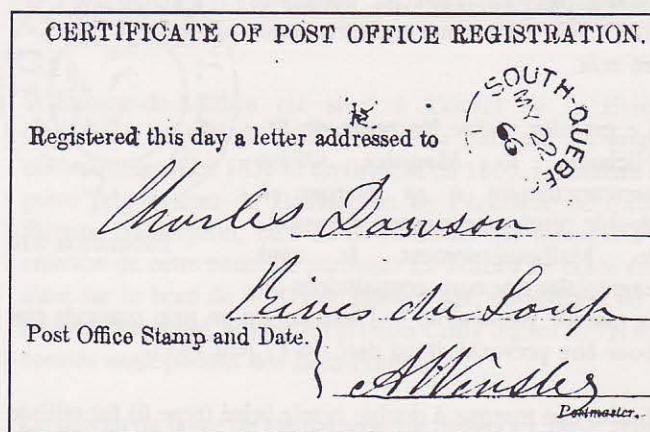 CERTIFICATE OF POST OFFICE REGISTRATION.
SOUTH-QUEBEC
MY 22
66
Registered this day a letter addressed to
Charles Dawson
du Loup
Post Office Stamp and Date.
Postmaster.